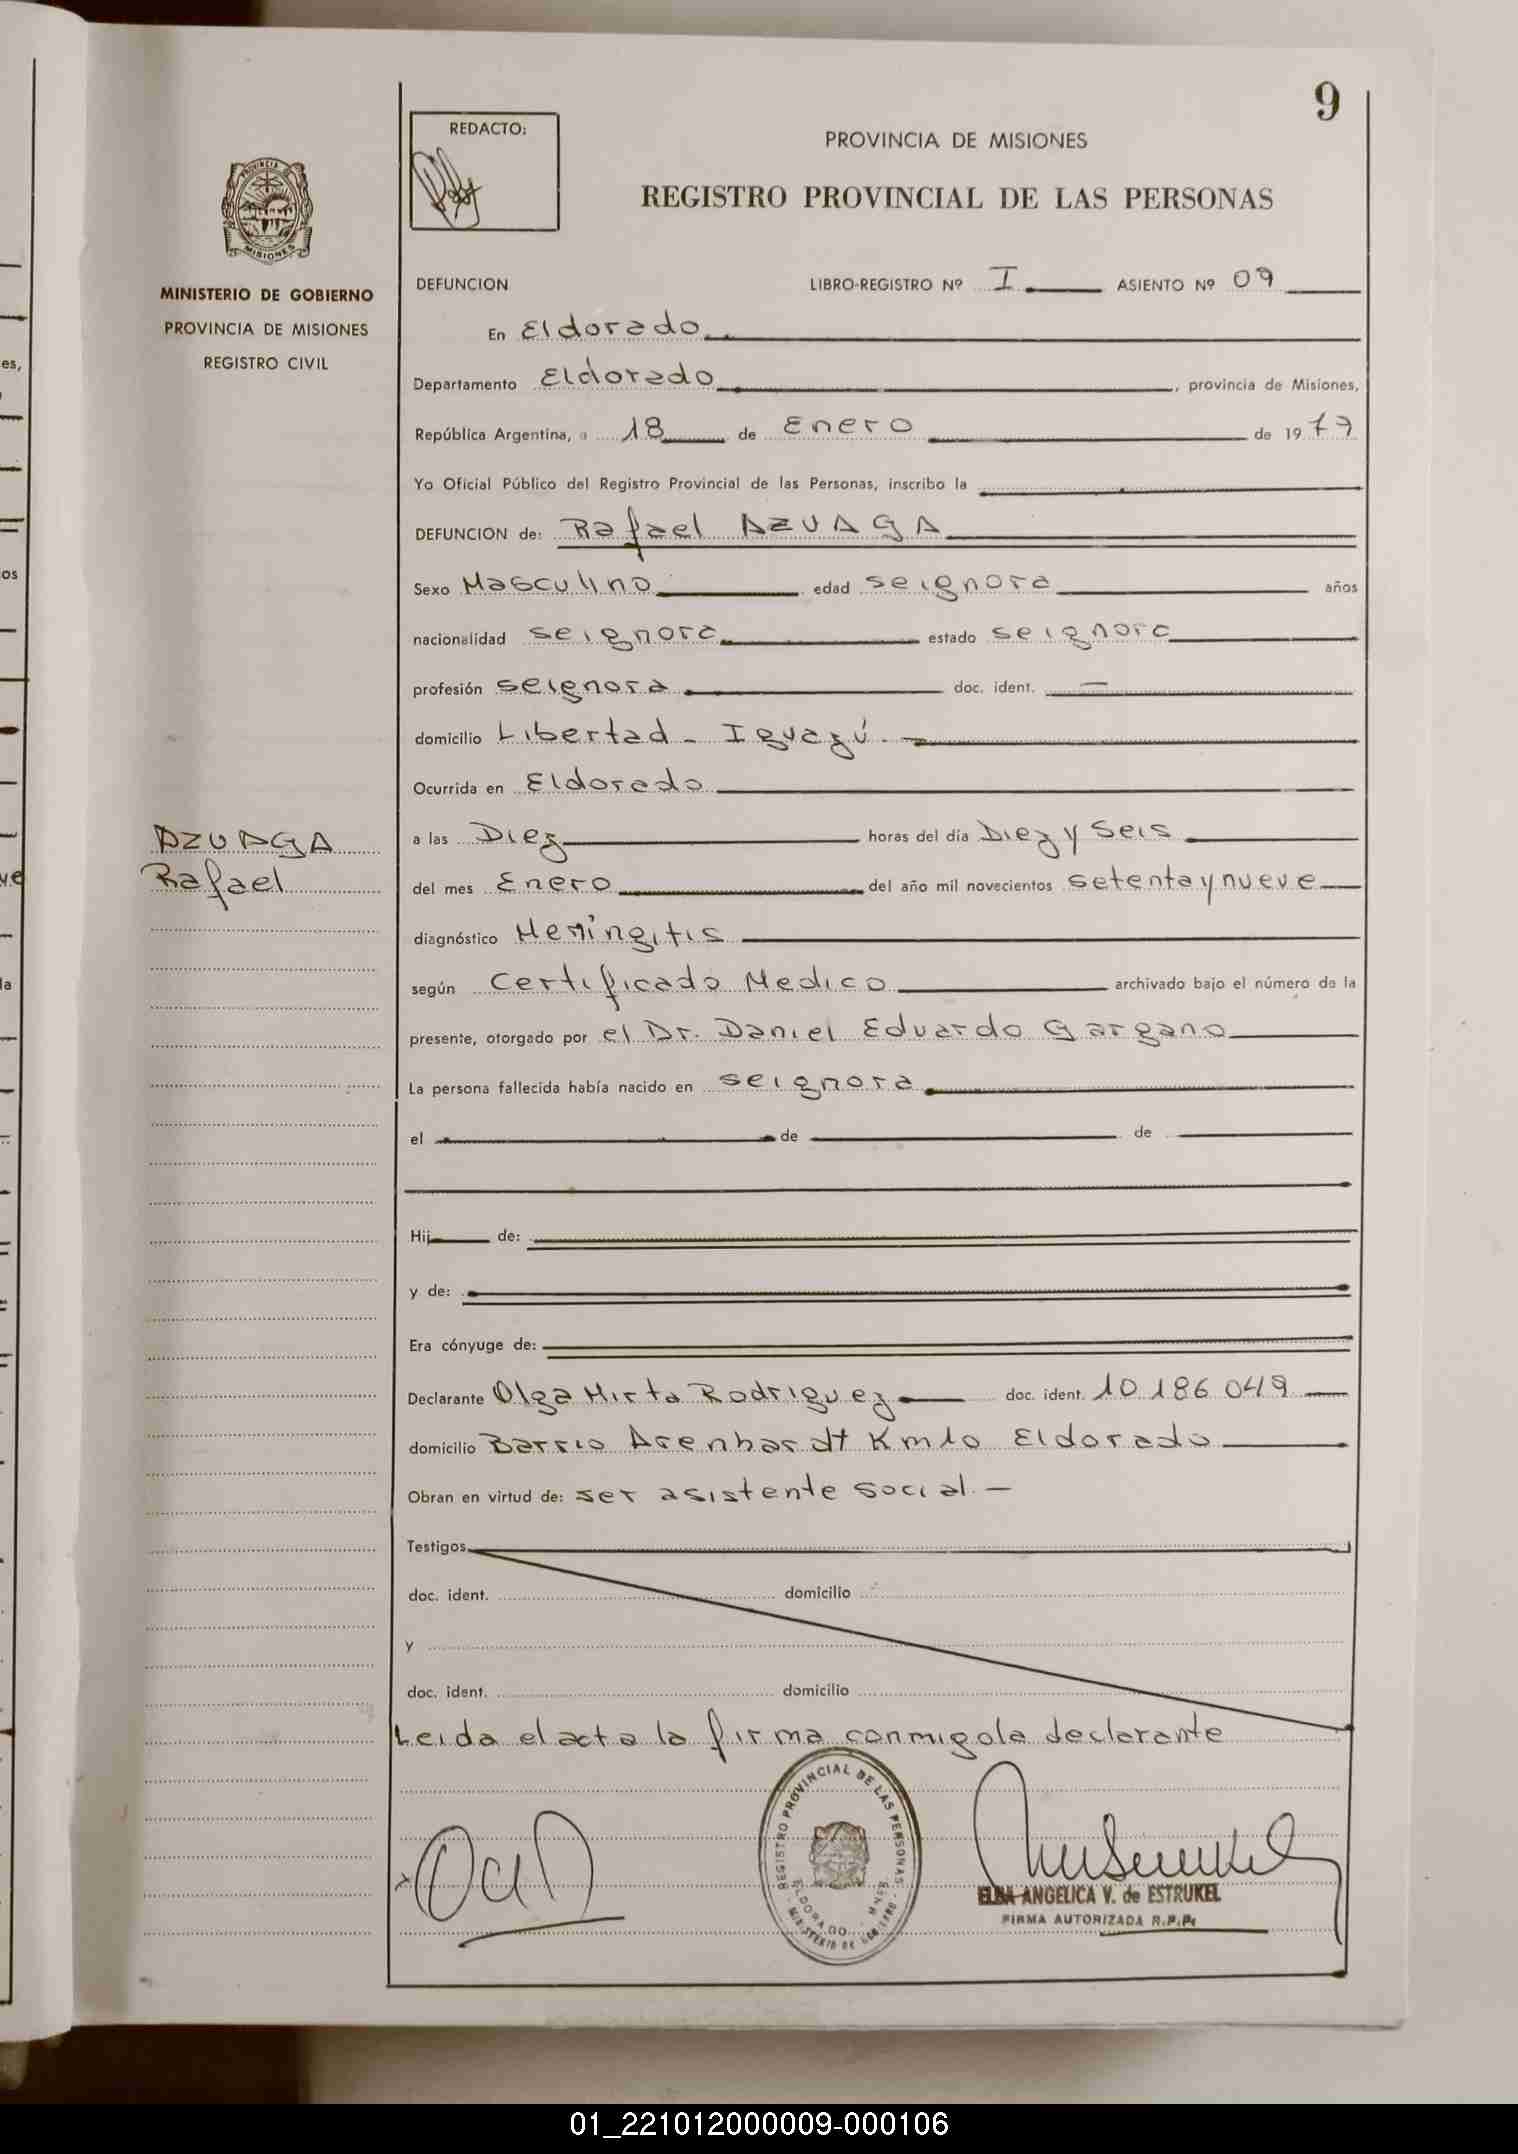 9
REDACTO:
PROVINCIA DE MISIONES
REGISTRO PROVINCIAL DE LAS PERSONAS
MISIONES
MINISTERIO DE GOBIERNO
PROVINCIA DE MISIONES
REGISTRO CIVIL
DEFUNCION LIBRO-REGISTRO Nº I ASIENTO Nº 09
En Eldorado
Departamento Eldorado, provincia de Misiones,
República Argentina, a 18 de Enero de 1979
Yo Oficial Público del Registro Provincial de las Personas, inscribo la
DEFUNCION de: Rafael AZUAGA
Sexo Masculino edad seignora años
nacionalidad seignora estado seignora
profesión seignora doc. ident. —
domicilio Libertad - Iguazú.-
Ocurrida en Eldorado
a las Diez horas del día Diez y Seis
AZUAGA
Rafael
del mes Enero del año mil novecientos setenta y nueve
diagnóstico Meningitis
según Certificado Medico archivado bajo el número de la
presente, otorgado por el Dr. Daniel Eduardo Gargano
La persona fallecida había nacido en seignora
el de de
Hij de:
y de:
Era cónyuge de:
Declarante Olga Mirta Rodriguez doc. ident. 10 186 049
domicilio Barrio Arenhardt Km 10 Eldorado
Obran en virtud de: ser asistente social. —
Testigos
doc. ident. domicilio
y
doc. ident. domicilio
Leida el acta la firma conmigo la declarante
REGISTRO PROVINCIAL DE LAS PERSONAS
ELDORADO - MNES.
MINISTERIO DE GOBIERNO
ELBA ANGELICA V. de ESTRUKEL
FIRMA AUTORIZADA R.P.P.
01_221012000009-000106